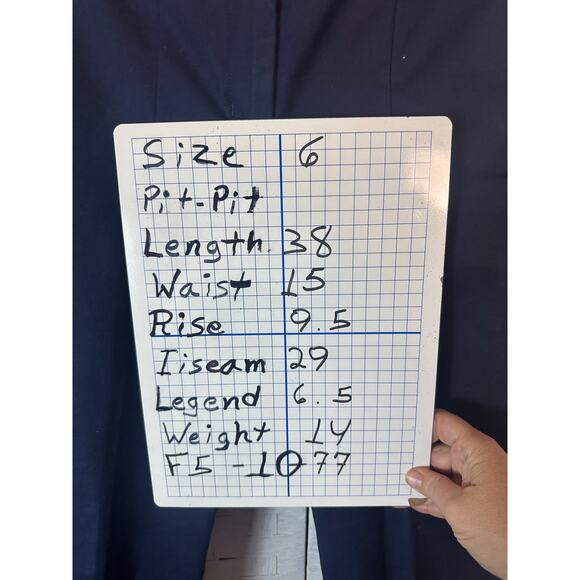 Size 6
Pit-Pit
Length. 38
Waist 15
Rise 9.5
Iiseam 29
Legend 6.5
Weight 14
F5 -10-77